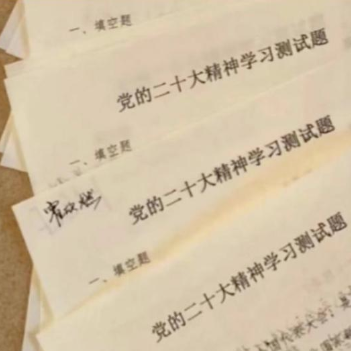 一、填空题
党的二十大精神学习测试题
一、填空题
党的二十大精神学习测试题
一、填空题
党的二十大精神学习测试题